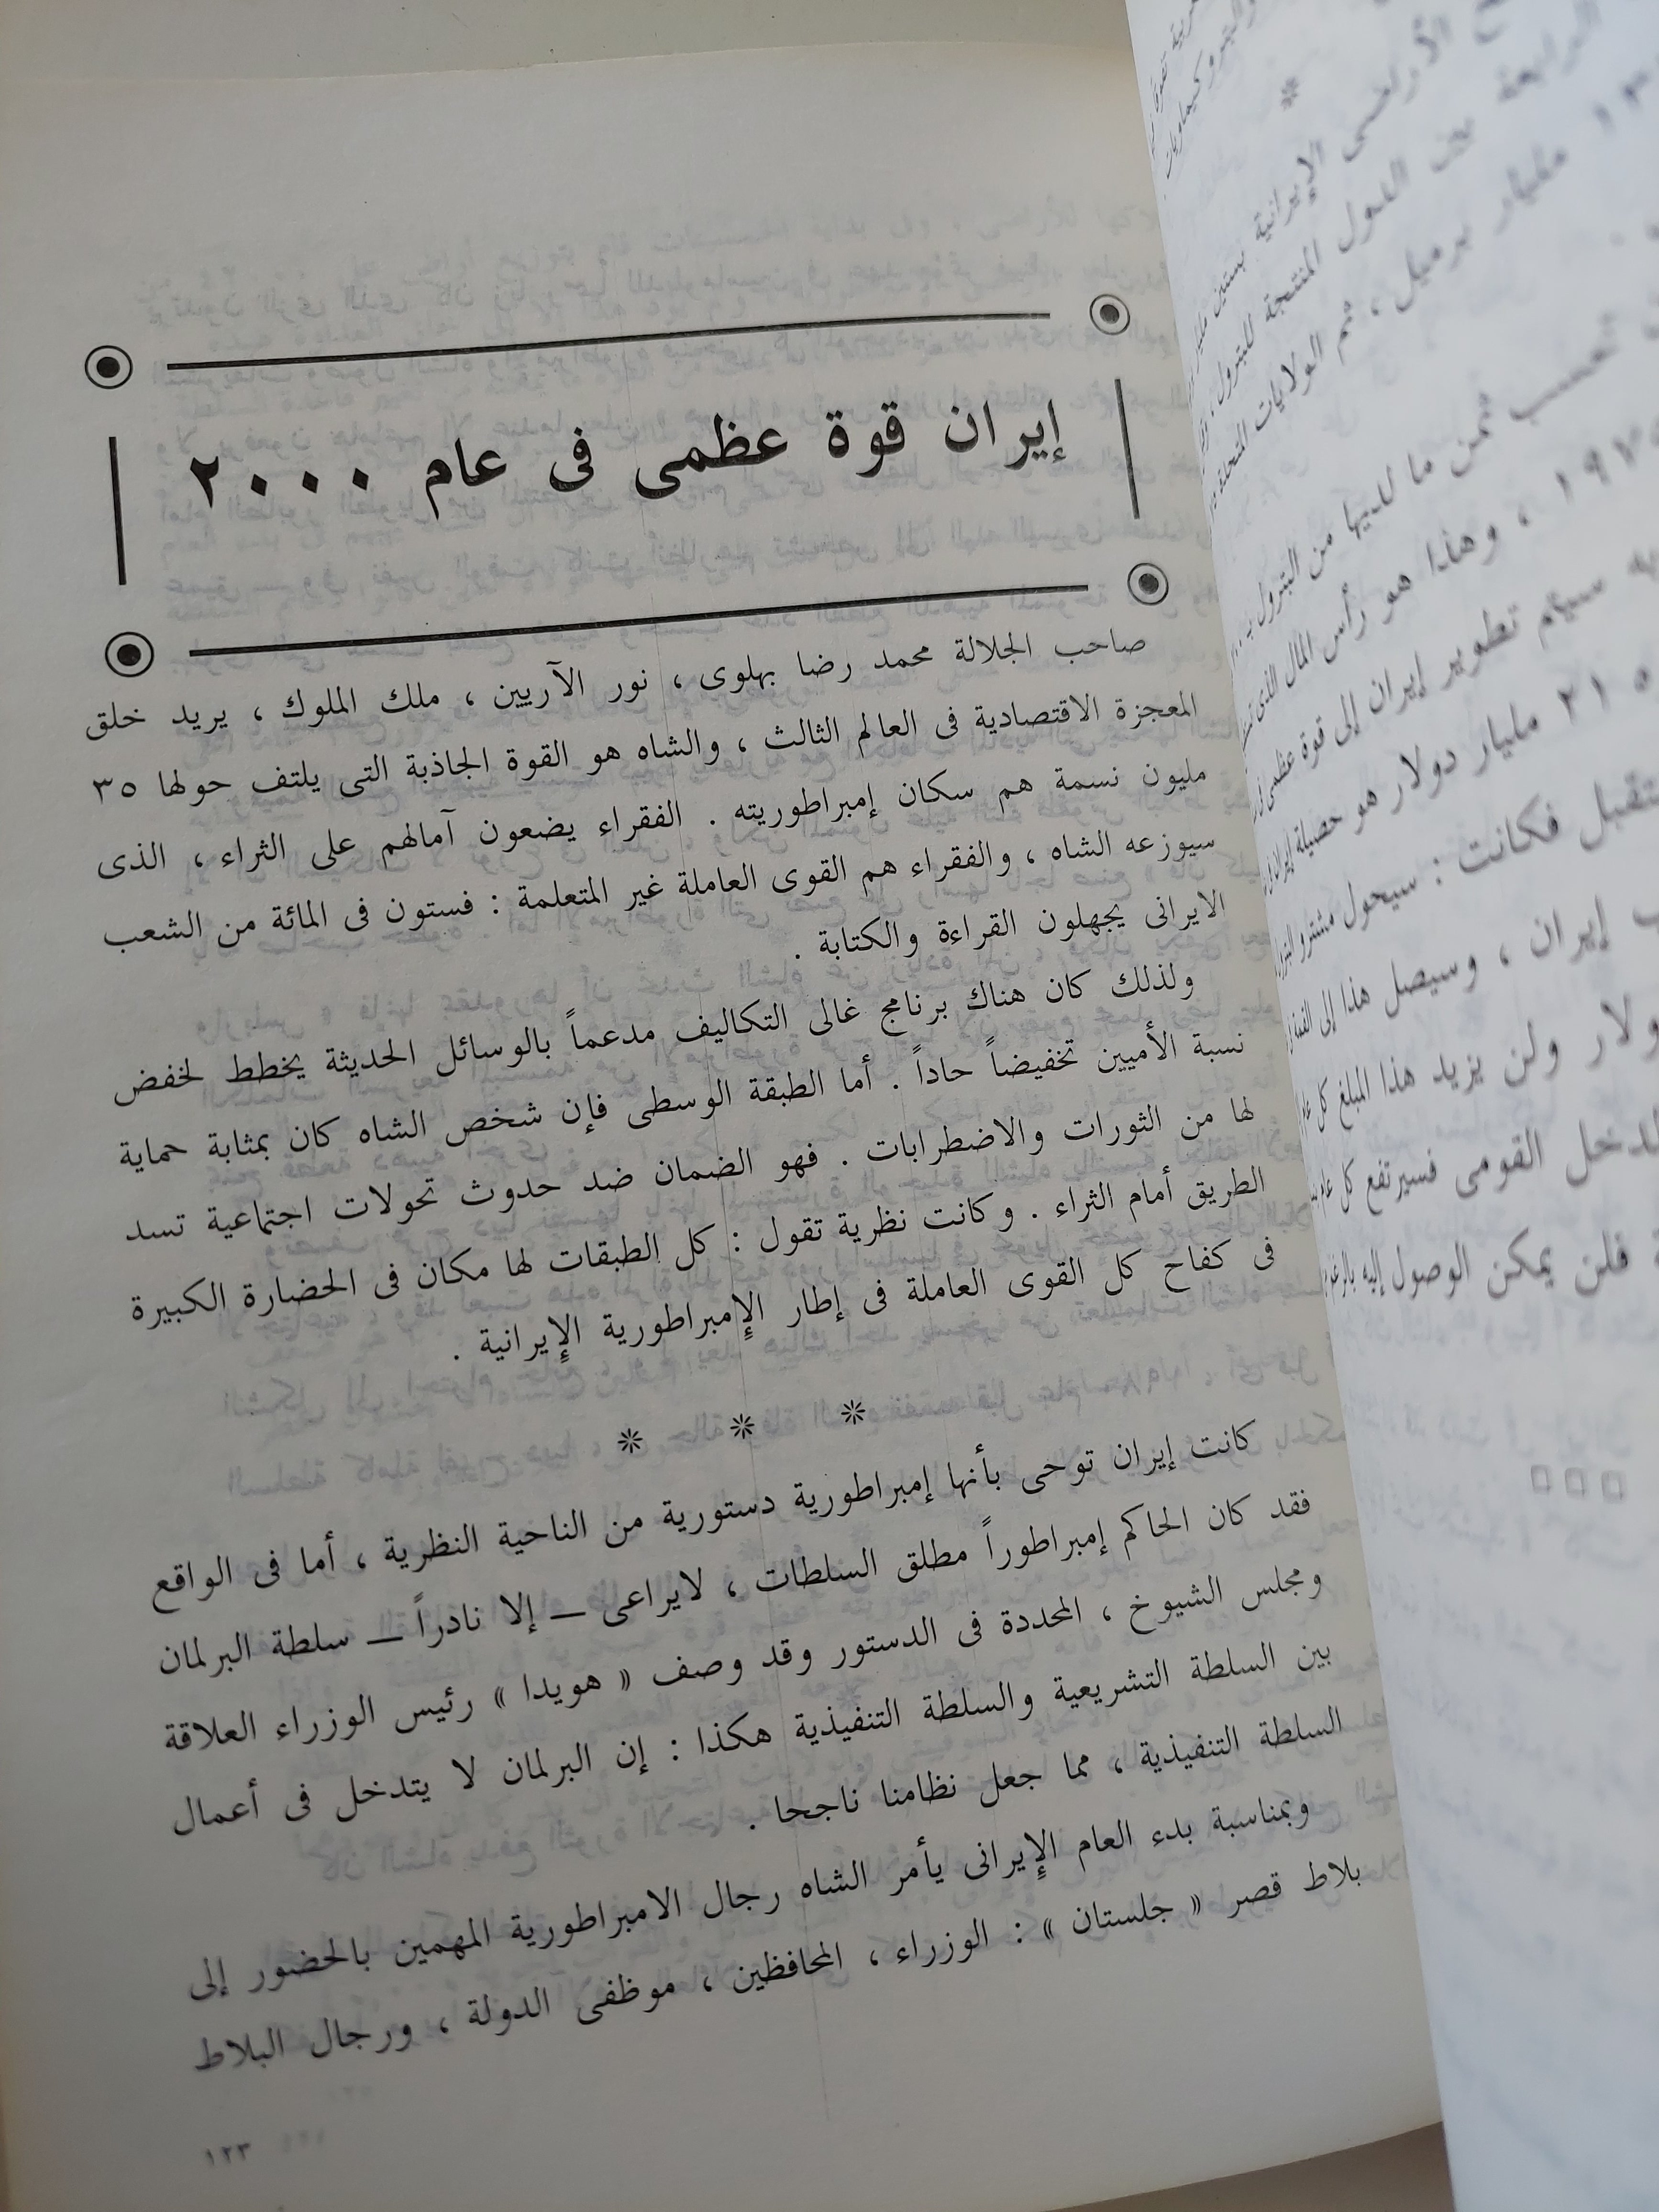 إيران قوة عظمى فى عام ٢٠٠٠
صاحب الجلالة محمد رضا بهلوى ، نور الآريين ، ملك الملوك ، يريد خلق
المعجزة الاقتصادية فى العالم الثالث ، والشاه هو القوة الجاذبة التى يلتف حولها ٣٥
مليون نسمة هم سكان إمبراطوريته . الفقراء يضعون آمالهم على الثراء ، الذى
سيوزعه الشاه ، والفقراء هم القوى العاملة غير المتعلمة : فستون فى المائة من الشعب
الايرانى يجهلون القراءة والكتابة .
ولذلك كان هناك برنامج غالى التكاليف مدعماً بالوسائل الحديثة يخطط لخفض
نسبة الأميين تخفيضاً حاداً . أما الطبقة الوسطى فإن شخص الشاه كان بمثابة حماية
لها من الثورات والاضطرابات . فهو الضمان ضد حدوث تحولات اجتماعية تسد
الطريق أمام الثراء . وكانت نظرية تقول : كل الطبقات لها مكان فى الحضارة الكبيرة
فى كفاح كل القوى العاملة فى إطار الإمبراطورية الإيرانية .
* * *
كانت إيران توحى بأنها إمبراطورية دستورية من الناحية النظرية ، أما فى الواقع
فقد كان الحاكم إمبراطوراً مطلق السلطات ، لايراعى — إلا نادراً — سلطة البرلمان
ومجلس الشيوخ ، المحددة فى الدستور وقد وصف « هويدا » رئيس الوزراء العلاقة
بين السلطة التشريعية والسلطة التنفيذية هكذا : إن البرلمان لا يتدخل فى أعمال
السلطة التنفيذية ، مما جعل نظامنا ناجحا .
وبمناسبة بدء العام الإيرانى يأمر الشاه رجال الامبراطورية المهمين بالحضور إلى
بلاط قصر « جلستان » : الوزراء ، المحافظين ، موظفى الدولة ، ورجال البلاط
١٢٣
*
الأراضى الإيرانية بستين
الرابعة الدول المنتجة للبترول ،
مليار برميل ، ثم الولايات المتحدة
ثمن ما لديها من البترول بـ
، وهذا هو رأس المال الذى
سيتم تطوير إيران إلى قوة عظمى
مليار دولار هو حصيلة
فكانت : سيحول مشترو
إيران ، وسيصل هذا إلى
ولن يزيد هذا المبلغ كل
القومى فسيرتفع كل عام
فلن يمكن الوصول إليه